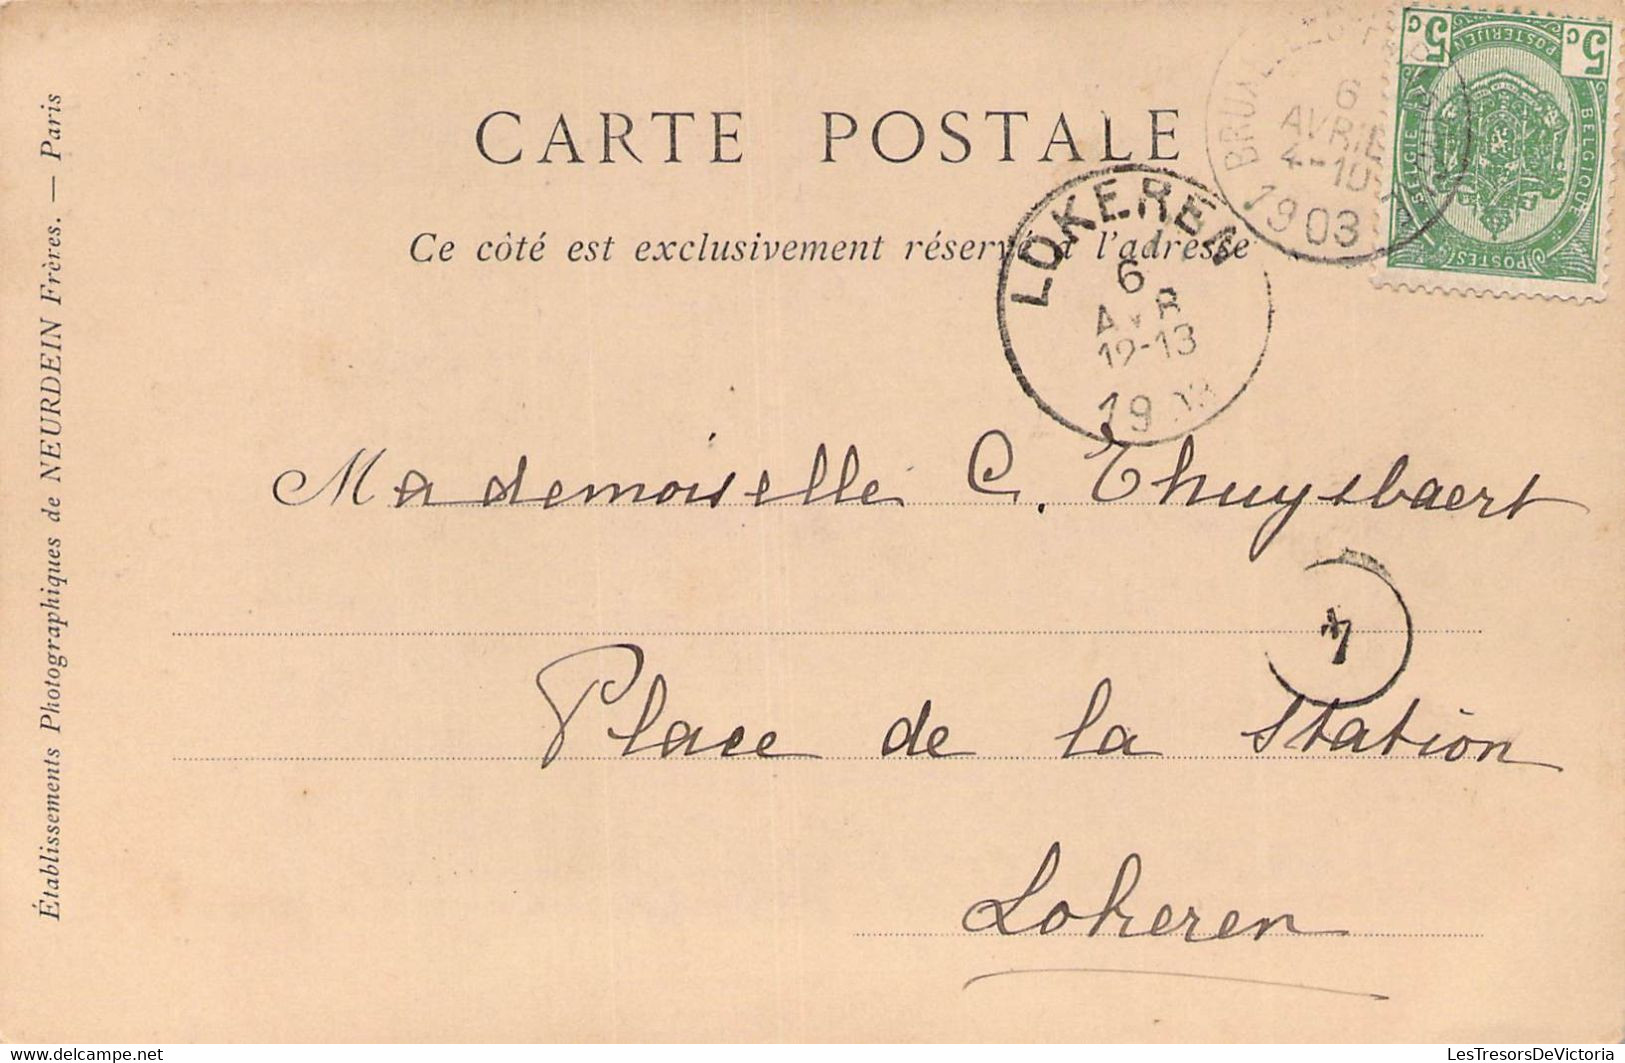 CARTE POSTALE
Ce côté est exclusivement réservé à l'adresse
5 c 5 c
POSTERIJEN
BELGIË BELGIQUE
POSTES
6
AVRIL
4-10
1903
LOKEREN
6
AVR
12-13
19
Mademoiselle C. Thuysbaert
4
Place de la Station
Lokeren
Établissements Photographiques de NEURDEIN Frères. — Paris
LesTresorsDeVictoria
LesTresorsDeVictoria.com